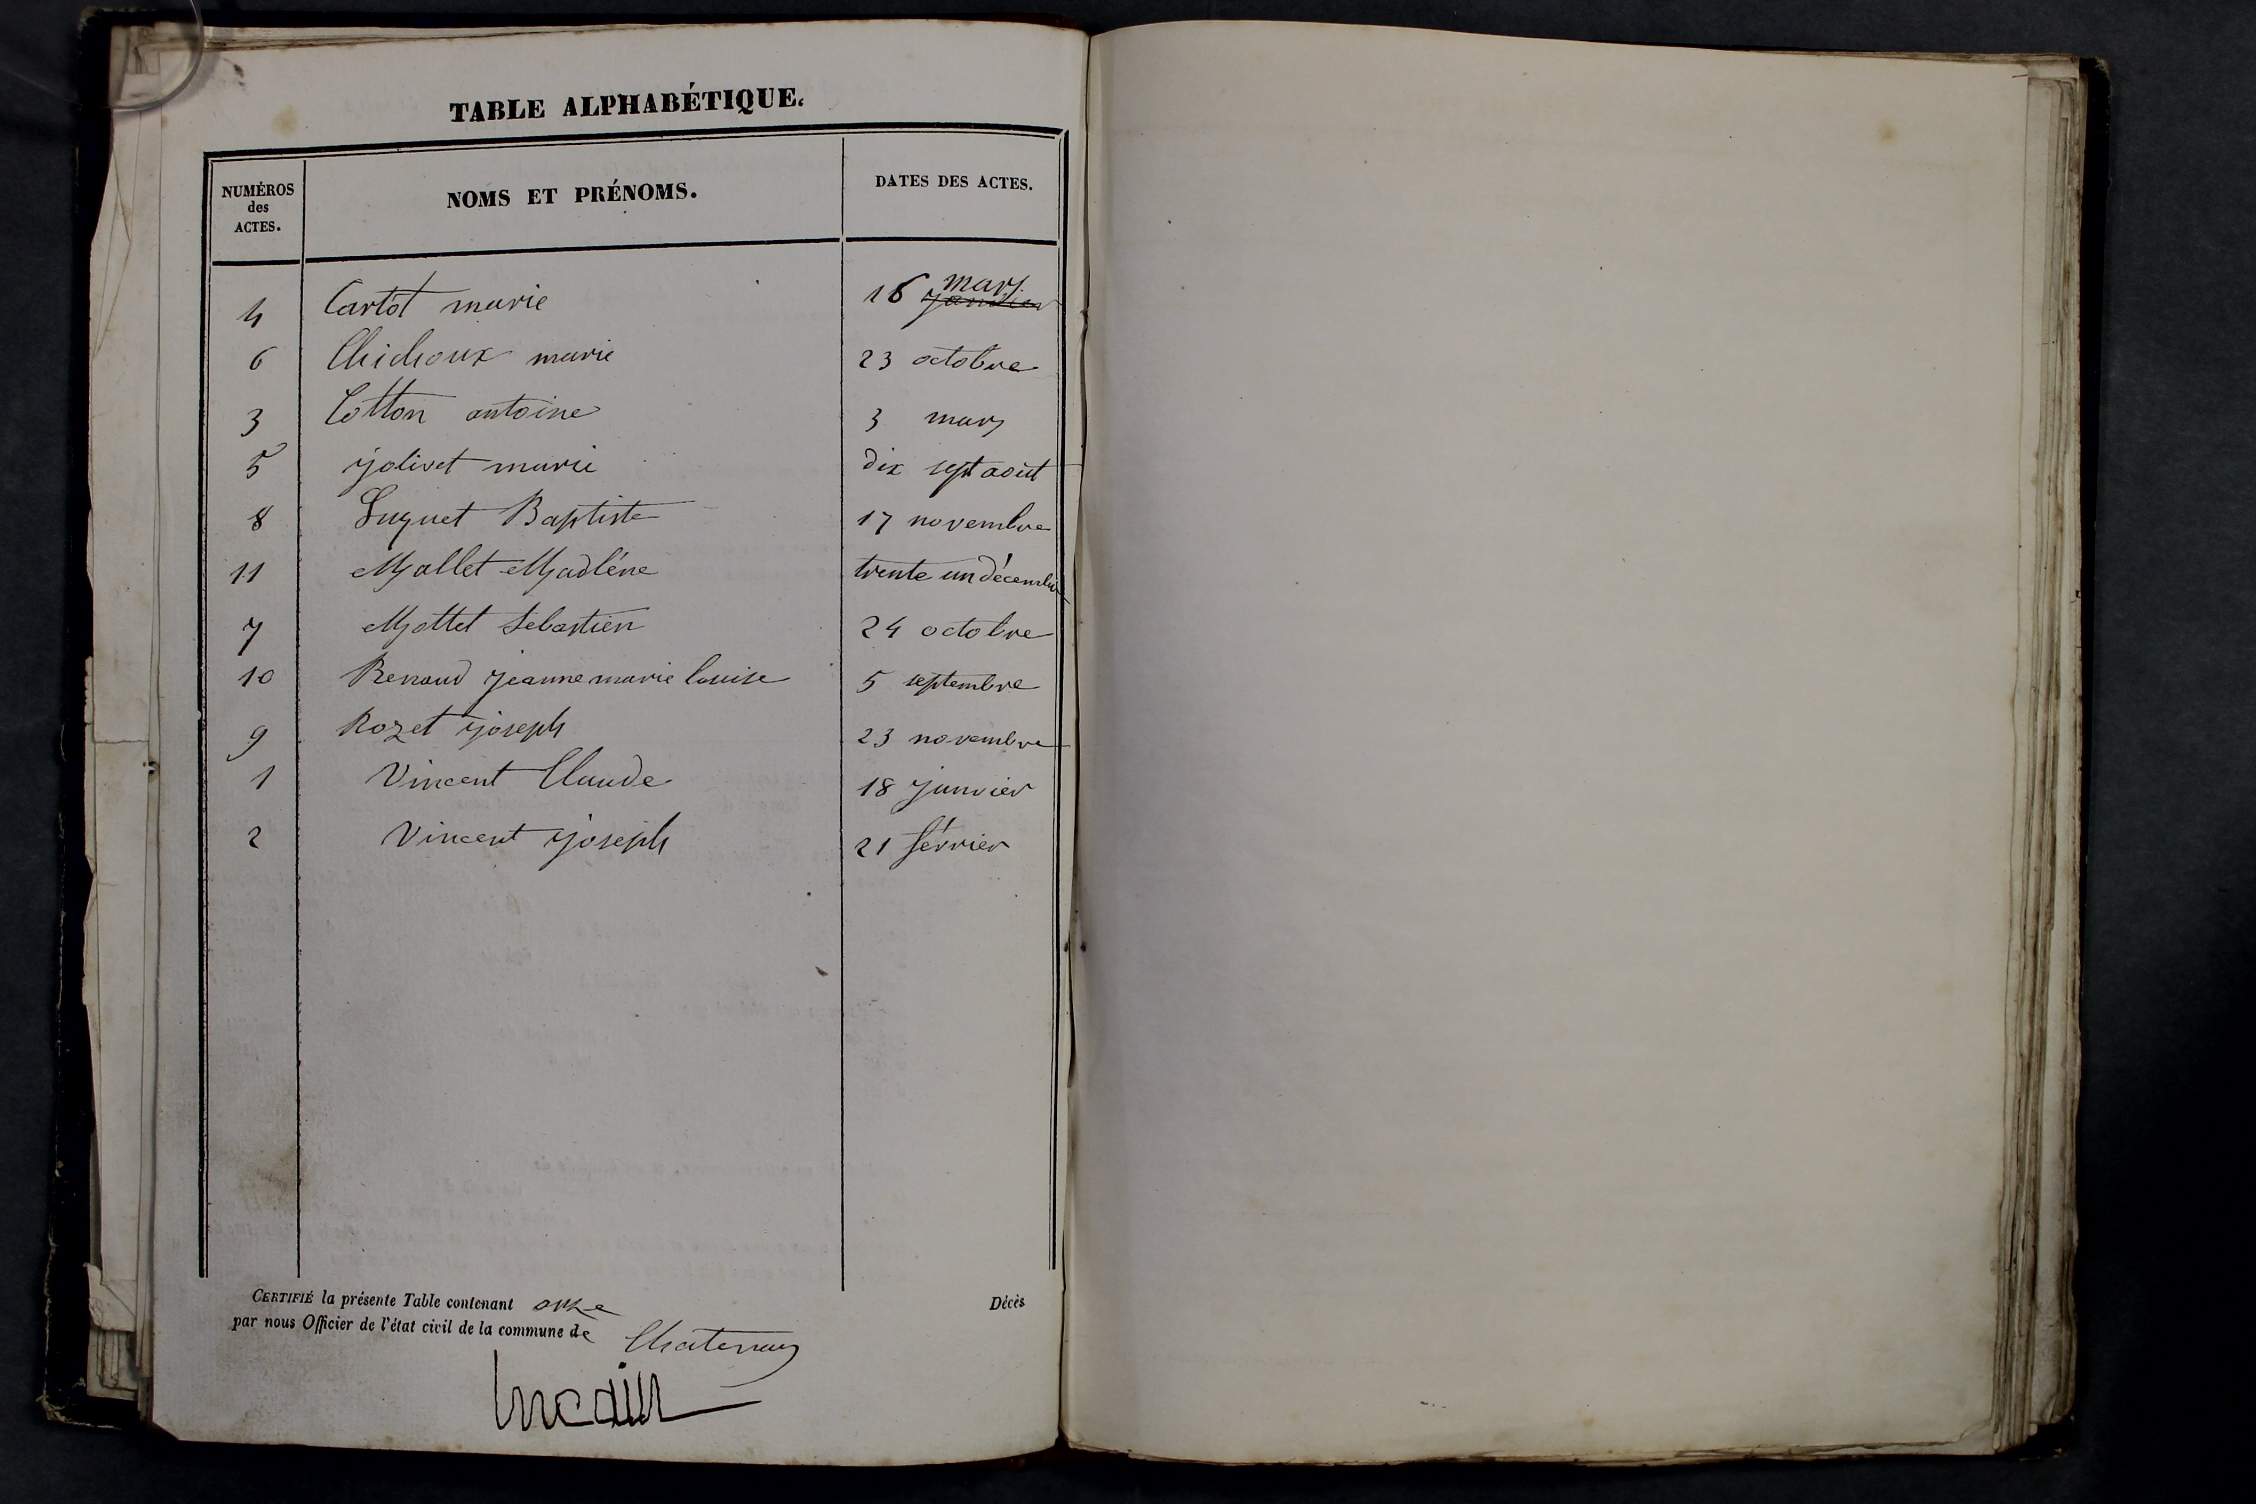 TABLE ALPHABÉTIQUE.
NUMÉROS des ACTES. NOMS ET PRÉNOMS. DATES DES ACTES.
4 Cartot marie 16 mars janvier
6 Chichoux marie 23 octobre
3 Cotton antoine 3 mars
5 jolivet marie dix sept août
8 Luquet Baptiste 17 novembre
11 Mallet Madléne trente un décembre
7 Mottet Sebastien 24 octobre
10 Renaud jeanne marie louise 5 septembre
9 Rozet joseph 23 novembre
1 Vincent Claude 18 janvier
2 Vincent joseph 21 février
CERTIFIÉ la présente Table contenant onze Décès
par nous Officier de l'état civil de la commune de Chatenay